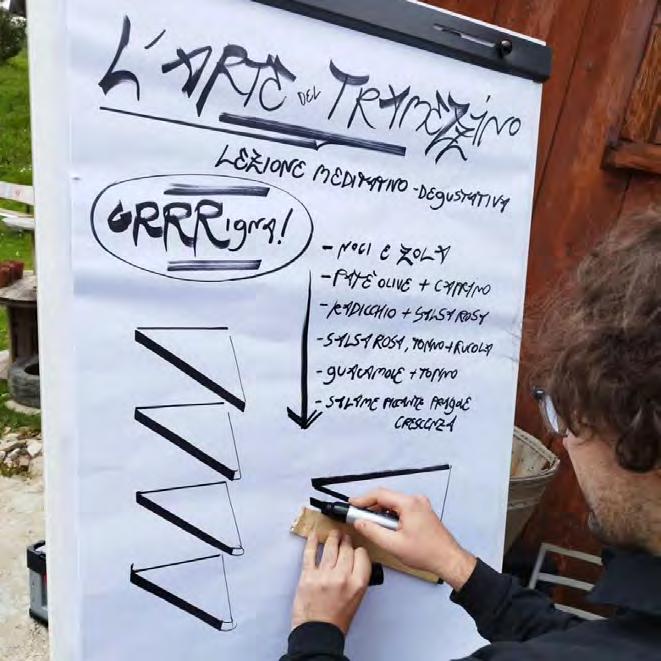 L'ARTE DEL TRAMEZZINO
LEZIONE MEDITATIVO-DEGUSTATIVA
GRRRigna!
- NOCI E ZOLA
- PATÈ OLIVE + CAPRINO
- RADICCHIO + SALSA ROSA
- SALSA ROSA, TONNO + RUCOLA
- GUACAMOLE + TONNO
- SALAME PICCANTE
CRESCENZA